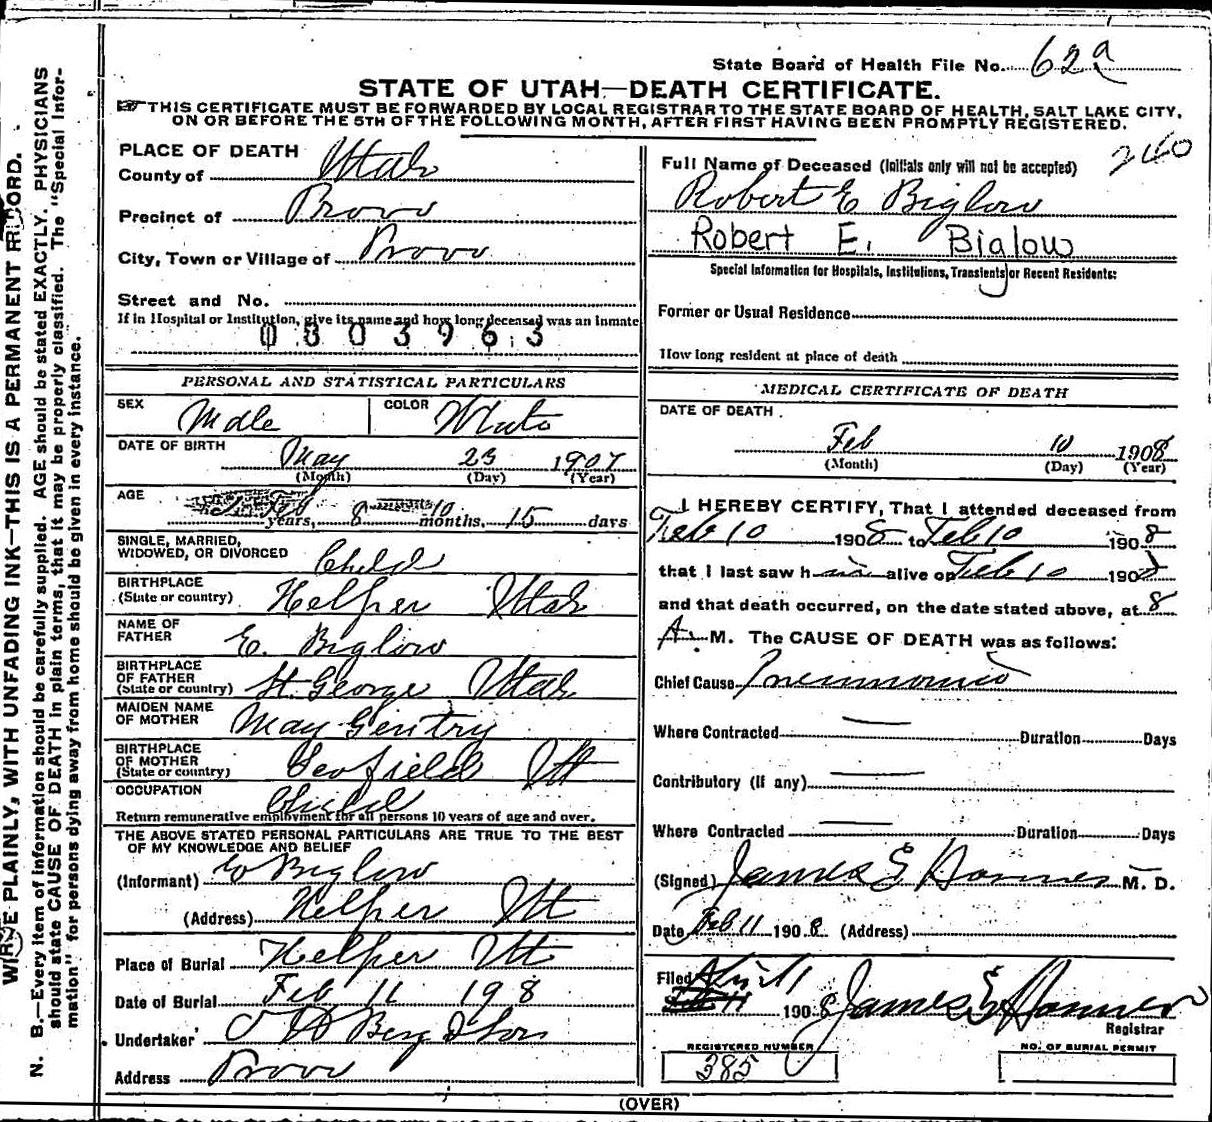 State Board of Health File No. 62a
STATE OF UTAH—DEATH CERTIFICATE.
THIS CERTIFICATE MUST BE FORWARDED BY LOCAL REGISTRAR TO THE STATE BOARD OF HEALTH, SALT LAKE CITY,
ON OR BEFORE THE 5TH OF THE FOLLOWING MONTH, AFTER FIRST HAVING BEEN PROMPTLY REGISTERED.
240
PLACE OF DEATH
County of Utah
Precinct of Provo
City, Town or Village of Provo
Street and No.
If in Hospital or Institution, give its name and how long deceased was an inmate
0303963
PERSONAL AND STATISTICAL PARTICULARS
SEX Male COLOR White
DATE OF BIRTH May 23 1907
(Month) (Day) (Year)
AGE years, 8 months, 15 days
SINGLE, MARRIED,
WIDOWED, OR DIVORCED Child
BIRTHPLACE
(State or country) Helper Utah
NAME OF
FATHER E. Biglow
BIRTHPLACE
OF FATHER
(State or country) St. George Utah
MAIDEN NAME
OF MOTHER May Gentry
BIRTHPLACE
OF MOTHER
(State or country) Scofield Ut
OCCUPATION Child
Return remunerative employment for all persons 10 years of age and over.
THE ABOVE STATED PERSONAL PARTICULARS ARE TRUE TO THE BEST
OF MY KNOWLEDGE AND BELIEF
(Informant) E Biglow
(Address) Helper Ut
Place of Burial Helper Ut
Date of Burial Feb 11 198
Undertaker Berg & Son
Address Provo
Full Name of Deceased (Initials only will not be accepted)
Robert E Biglow
Robert E. Biglow
Special Information for Hospitals, Institutions, Transients or Recent Residents:
Former or Usual Residence
How long resident at place of death
MEDICAL CERTIFICATE OF DEATH
DATE OF DEATH
Feb 10 1908
(Month) (Day) (Year)
I HEREBY CERTIFY, That I attended deceased from
Feb 10 1908 to Feb 10 1908
that I last saw him alive on Feb 10 1908
and that death occurred, on the date stated above, at 8
A. M. The CAUSE OF DEATH was as follows:
Chief Cause Pneumonia
Where Contracted Duration Days
Contributory (if any)
Where Contracted Duration Days
(Signed) James E Hosmer M. D.
Date Feb 11 1908 (Address)
Filed April 1
1908 James E Hosmer
Registrar
REGISTERED NUMBER
385
NO. OF BURIAL PERMIT
(OVER)
WRITE PLAINLY, WITH UNFADING INK—THIS IS A PERMANENT RECORD.
N. B.—Every item of information should be carefully supplied. AGE should be stated EXACTLY. PHYSICIANS
should state CAUSE OF DEATH in plain terms, that it may be properly classified. The "Special Infor-
mation" for persons dying away from home should be given in every instance.